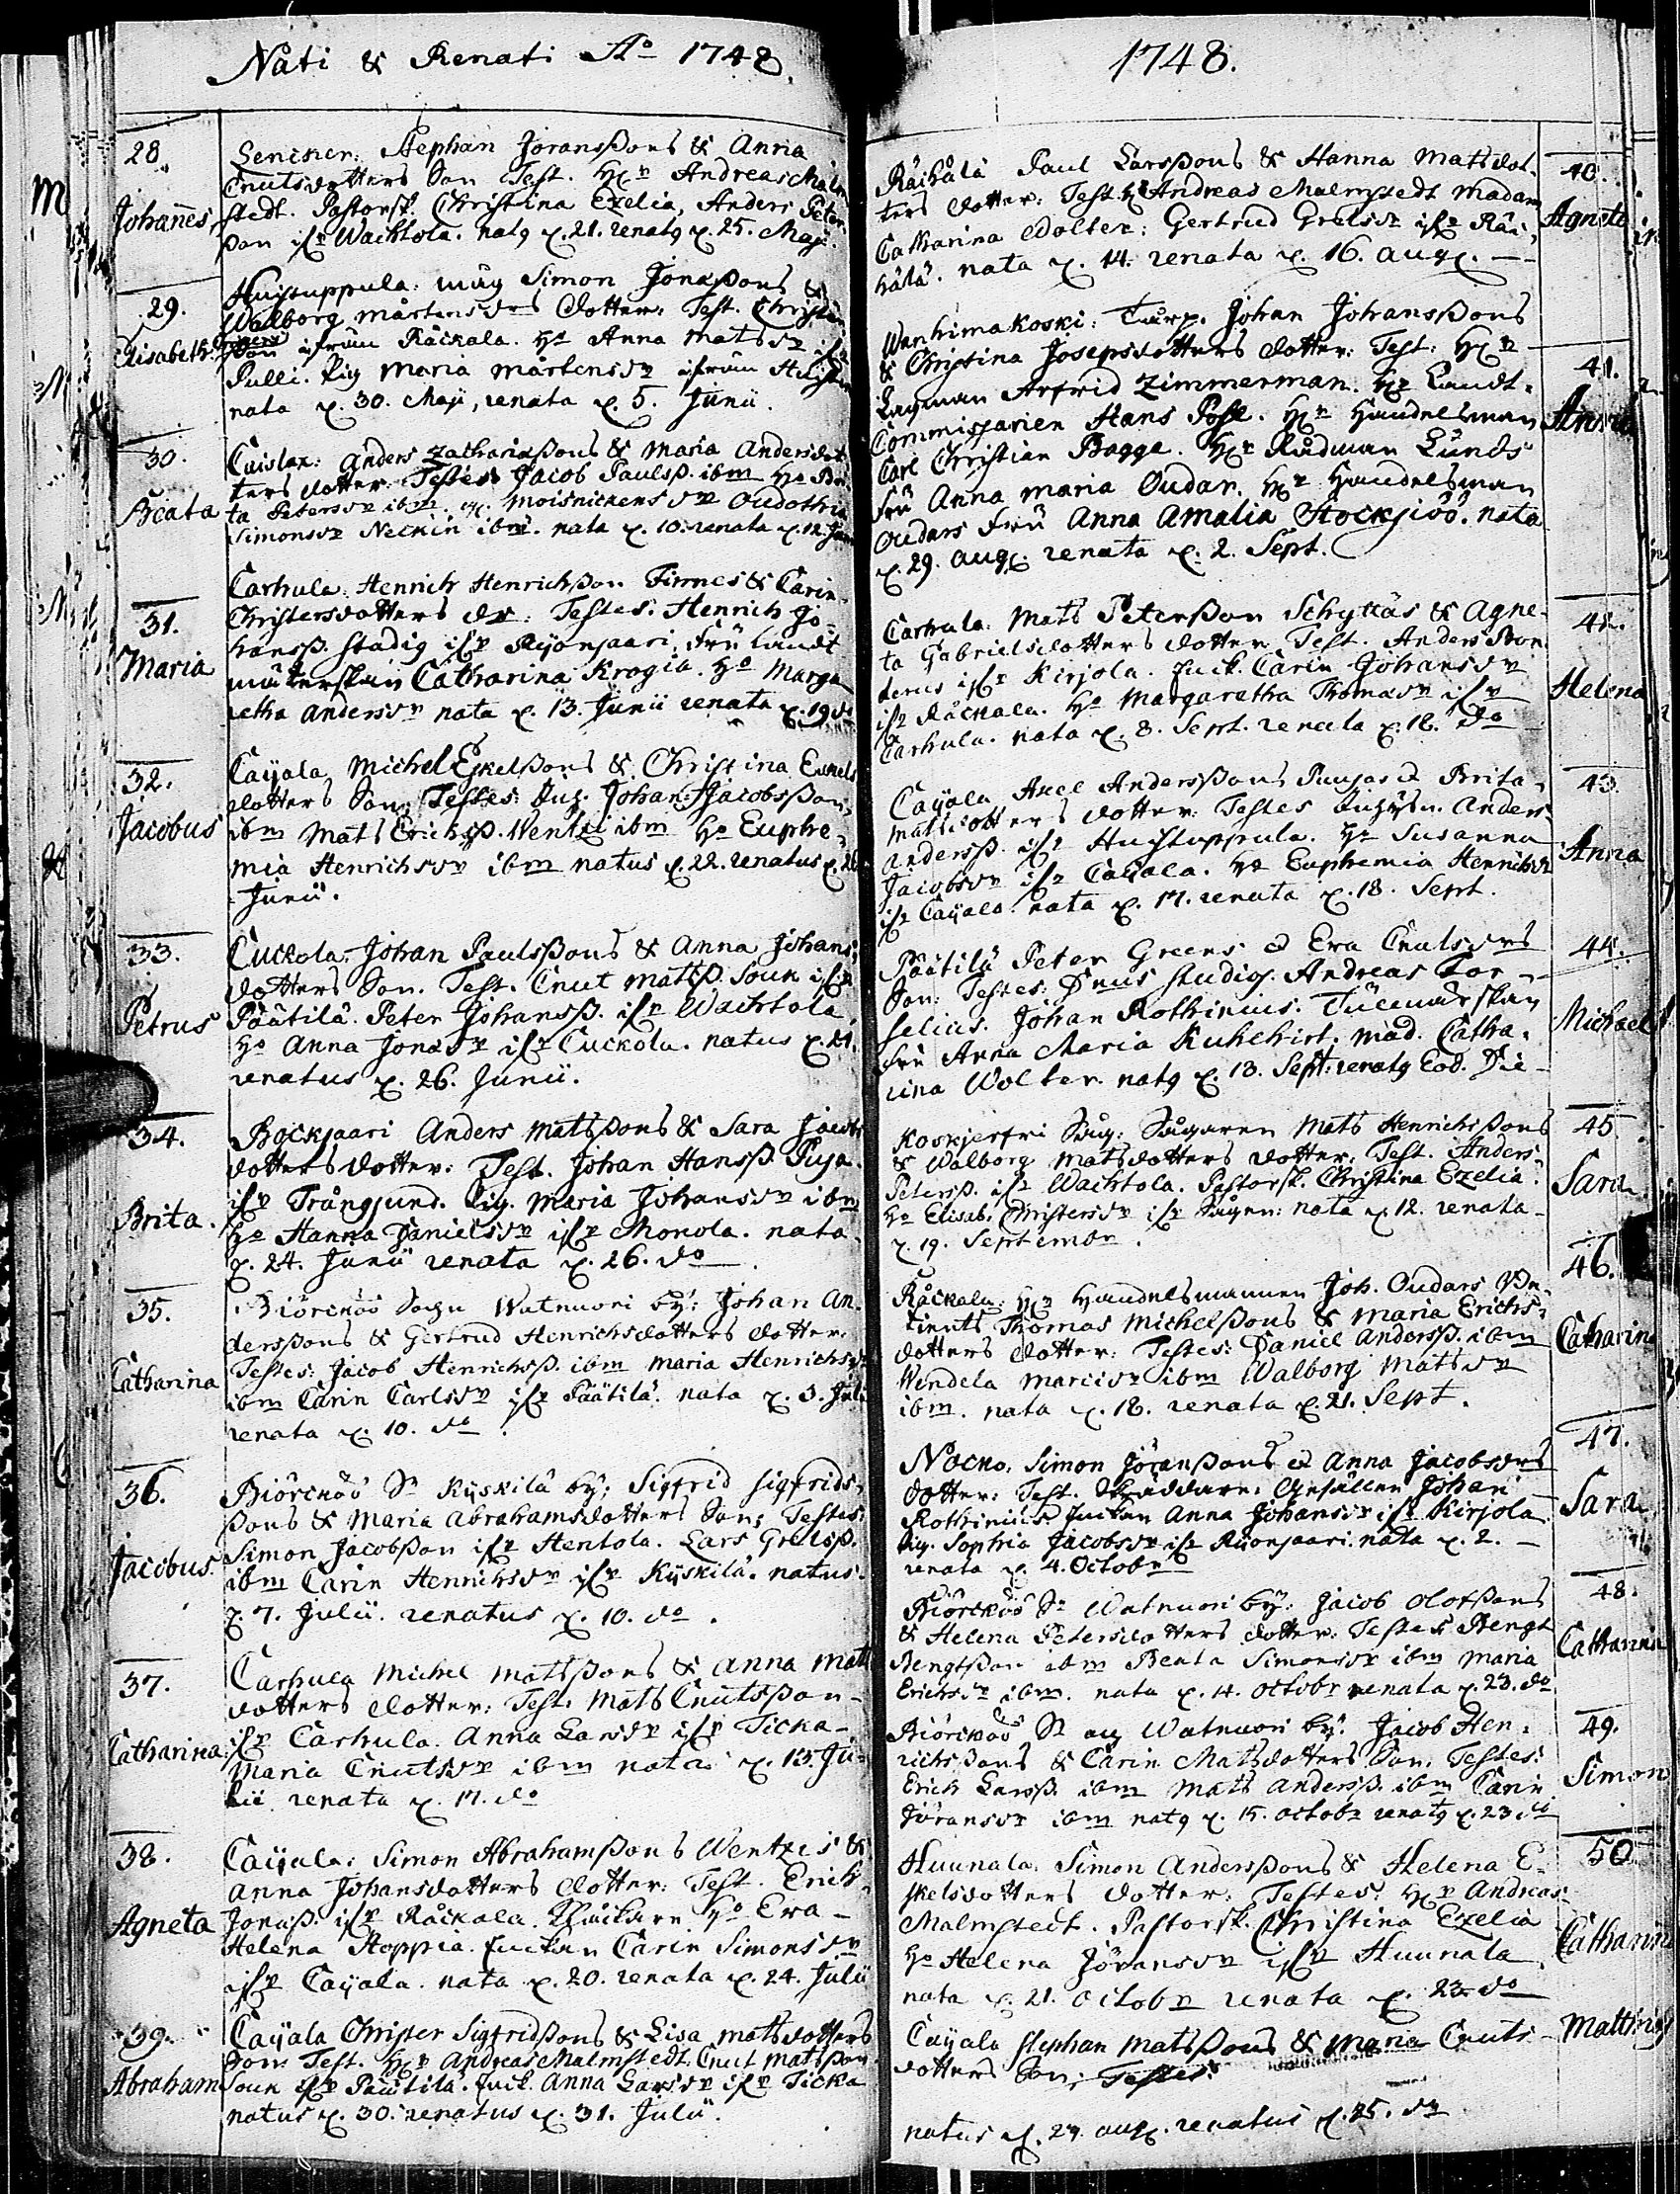 Nati & Renati Aº 1748.
28.
Johannes
Seniken: Stephan Joranßons & Anna
Cnutsdotters Son Test. Hr Andreas Malm
stedt. Pastorsk. Christina Ezelia, Anders Peter
ßon ifr Wachtola. natg d. 21. renatg d. 25. Maji.
29.
Elisabeth.
Huistuppula: Simon Jonaßons &
Walborg mårtensdrs dotter. Test. Christer
ßon ifrån Räickala. Ho Anna Matsdr ifr
Pulli. Pig Maria mårtensdr ifrån
nata d. 30. Maji, renata d. 5. Junii.
30.
Beata
Caislax: Anders Zachariaßons & Maria Andersdot
ters dotter. Testes Jacob Paulsß. ibm Ho
ta Petersdr ibm. Moisnickens Oudothia
Simonsdr Neckin ibm. nata d. 10. renata d. 12. Jun
31.
Maria
Carhula. Hennich Henrichßon Firnes & Carin
Christersdotters dr: Testes. Henrich Jo-
hansß. stadig ifr Ryönsaari. Fru landt
mäterskan Catharina Krogia. Ho Marga
retha Andersdr nata d. 13. Junii renata d. 19 do
32.
Jacobus
Cayala, Michel Eskelßons & Christina Eskels
dotters Son, Testes: Johan Jacobsßon
ibm Mats Erichsß. Wentzi ibm Ho Euphe-
mia Henrichsdr ibm natus d. 22. renatus d. 26
Junii.
33.
Petrus
Cuckola. Johan Paulsßons & Anna Johans-
dotters Son. Test. Cnut Matsß. Soun ifr
Päätilä. Peter Johansß. ifr Wachtola
Ho Anna Jonasdr ifr Cuckola. natus d. 21.
renatus d. 26. Junii.
34.
Brita.
Bocksaari Anders Matsßons & Sara Jacobs
dotters dotter: Test. Johan Hansß Puja.
ifr Trångsund. Pig. Maria Johansdr ibm
Ho Hanna Danielsdr ifr Monola. nata
d. 24. Junii renata d. 26. do
35.
Catharina
Biörckö Sokn Watnuori by: Johan An-
derssßons & Gertrud Henrichsdotters dotter.
Testes: Jacob Henrichsß. ibm Maria Henrichsdr
ibm Carin Carlsdr ifr Päätilä. nata d. 3. Julii
renata d. 10. do
36.
Jacobus.
Biörckö Sn Kyskilä by: Sigfrid Sigfrids-
ßons & Maria Abrahamsdotters Son; Testes:
Simon Jacobßon ifr Hentola. Lars Grelsß.
ibm Carin Henrichsdr ifr Kyskilä. natus
d. 7. Julii. renatus d. 10. do.
37.
Catharina
Carhula Michel Matsßons & Anna Mats
dotters dotter: Test: Mats Cnutsßon
ifr Carhula. Anna Larsdr ifr Ticka-
Maria Cnutsdr ibm nata d. 15. Ju-
lii renata d. 17. do
38.
Agneta
Cayala: Simon Abrahamßons Wentzis &
Anna Johansdotters dotter: Test. Erich
Jonasß. ifr Räckala. Ho Eva
Helena Hoppia. Carin Simonsdr
ifr Cayala. nata d. 20. renata d. 24. Julii
39.
Abraham
Cayala Christer Sigfridßons & Lisa Matsdotters
Son. Test. Hr Andreas Malmstedt. Cnut Matsßon
Soun ifr Päätilä. Anna Larsdr ifr Ticka
natus d. 30. renatus d. 31. Julii.
1748.
40.
Agneta
Räihälä Paul Larsßons & Hanna Matsdot-
ters dotter. Test. Hr Andreas Malmstedt Madam
Catharina Wolter: Gertrud Grelsdr ifr Räi-
hälä. nata d. 14. renata d. 16. aug.
41.
Anna
Wanhimakoski: Johan Johansßons
& Christina Josepsdotters dotter: Test: Hr
Lagman Arfvid Zimmerman. Hr Landt-
Commissarien Hans Hr Handelsman
Carl Christian Bagge. Hr Rådman Lunds
Fru Anna Maria Oudar. Hr Handelsman
Oudars Fru Anna Amalia Hocksiöö. nata
d. 29. aug. renata d. 2. Sept.
42.
Helena
Carhula. Mats Peterßon Schyttäs & Agne-
ta Gabrielsdotters dotter. Test. Anders
ifr Kirjola. Carin Johansdr
ifr Räckala. Ho Margaretha Thomasdr ifr
Carhula. nata d. 8. Sept. renata d: 18. do
43.
Anna
Cayala Axel Anderßons Punjas & Brita
Matsdotters dotter: Testes Anders
Andersß ifr Huistuppula. Ho Susanna
Jacobsdr ifr Cayala. Ho Euphemia Henrichsdr
ifr Cayala. nata d. 17. renata d. 18. Sept.
44.
Michael
Päätilä Peter Greens & Eva Cnutsdrs
Son: Testes: Dnus studios. Andreas For-
selius. Johan Rothinius. Tullnärskan
Fru Anna Maria Kuhehirt. mad. Catha-
rina Wolter. natg d. 13. Sept: renatg Eod. Die
45
Sara
Koskjerfvi Såg: Sågaren Mats Henrichsßons
& Walborg Matsdotters dotter: Test. Anders
Petersß. ifr Wachtola. Pastorsk. Christina Ezelia.
Ho Elisab. Christersdr ifr Sågen: nata d. 12. renata
d. 19. Septembr.
46.
Catharina
Räckala. Hr Handelsmannen Joh. Oudars
Thomas Michelßons & Maria Erichs-
dotters dotter: Testes: Daniel Andersß. ibm
Wendela ibm Walborg Matsdr
ibm. nata d. 18. renata d. 21. Sept.
47.
Sara
Nocko. Simon Jöranßons & Anna Jacobsdrs
dotter: Test. Skräddare Gesällen Johan
Rothinius Anna Johansdr ifr Kirjola
Pig. Sophia Jacobsdr ifr Ryönsaari. nata d. 2.
renata d. 4. Octobr
48.
Catharina
Biörckö Sn Watnuori by: Jacob Olofßons
& Helena Petersdotters dotter: Testes: Bengt
Bengtßon ibm Beata Simonsdr ibm Maria
Erichsdr ibm. nata d. 14. Octobr renata d. 23. do
49.
Simon
Biörckö Sn Watnuori by: Jacob Hen-
richsßons & Carin Matsdotters Son. Testes:
Erich Larsß. ibm Mats Andersß. ibm Carin
Jöransdr ibm natg d. 15. octobr renatg d. 23 do
50
Catharina
Huunala. Simon Andersßons & Helena E-
skelsdotters dotter: Testes: Hr Andreas
Malmstedt. Pastorsk. Christina Ezelia
Ho Helena Jöransdr ifr Huunala
nata d. 21. Octobr renata d. 23 do
Matthias
Cayala Stephan Matsßons & Maria Cnuts
dotters Son; Testes:
natus d. 24. aug. renatus d. 25. do